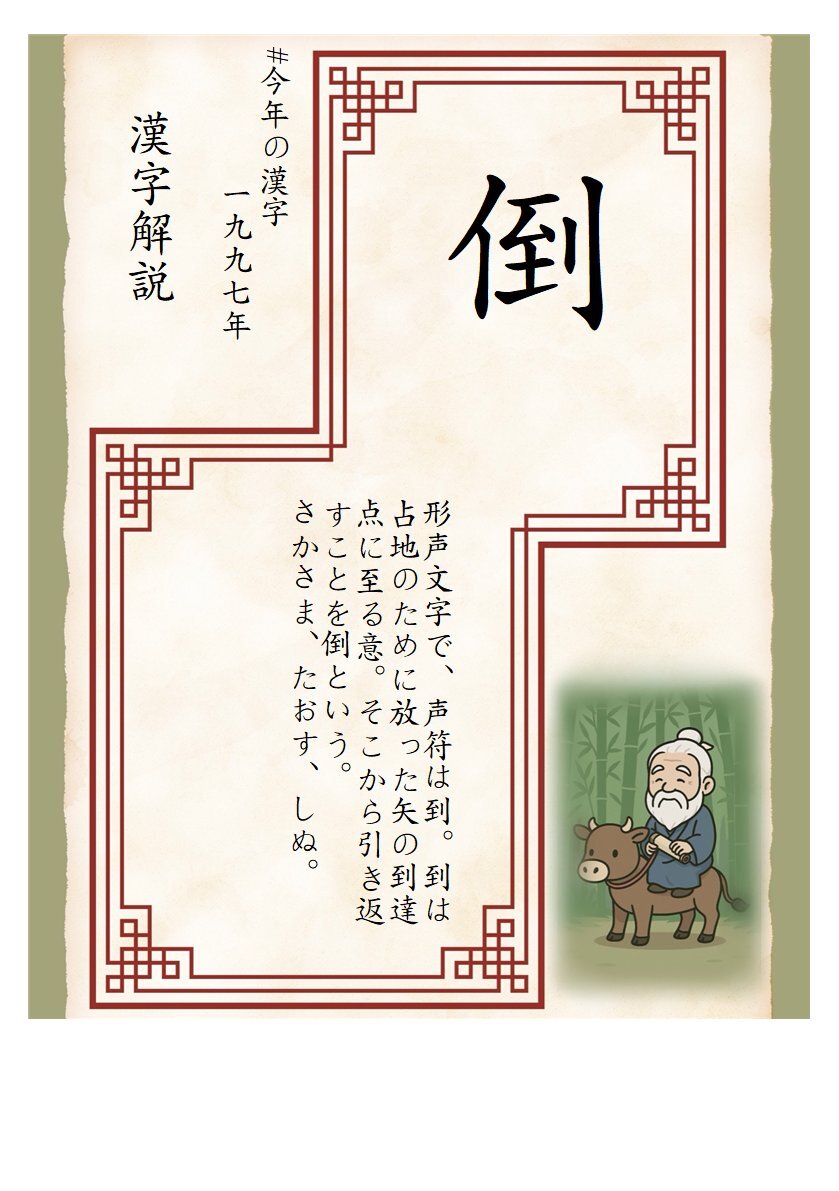 倒
#今年の漢字
一九九七年
漢字解説
形声文字で、声符は到。到は
占地のために放った矢の到達
点に至る意。そこから引き返
すことを倒という。
さかさま、たおす、しぬ。